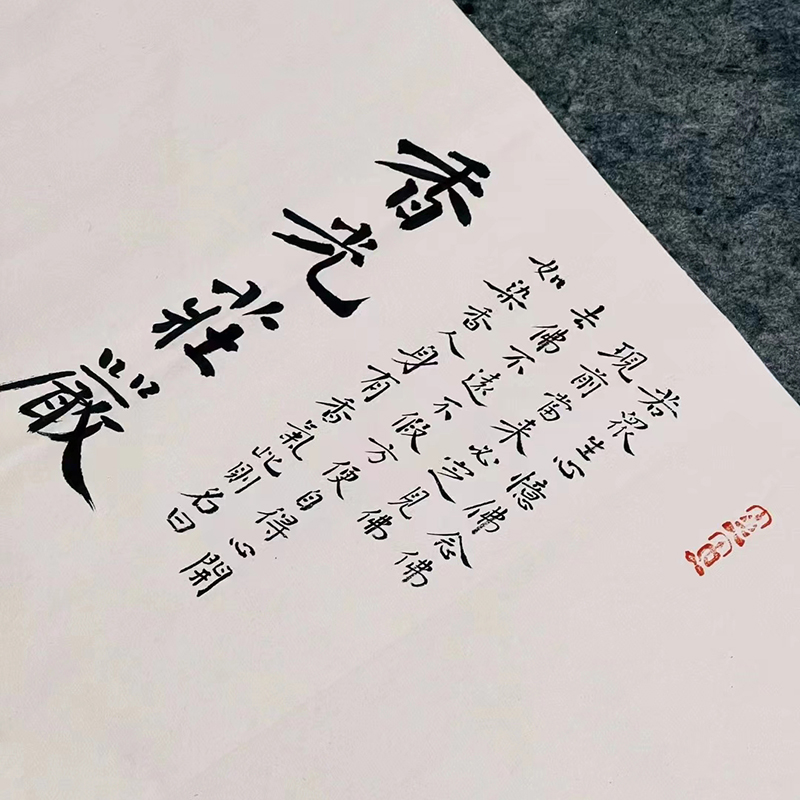 若眾生心憶佛念佛
現前當来必定見佛
去佛不遠不假方便自得心開
如染香人身有香氣此則名曰
香光莊嚴